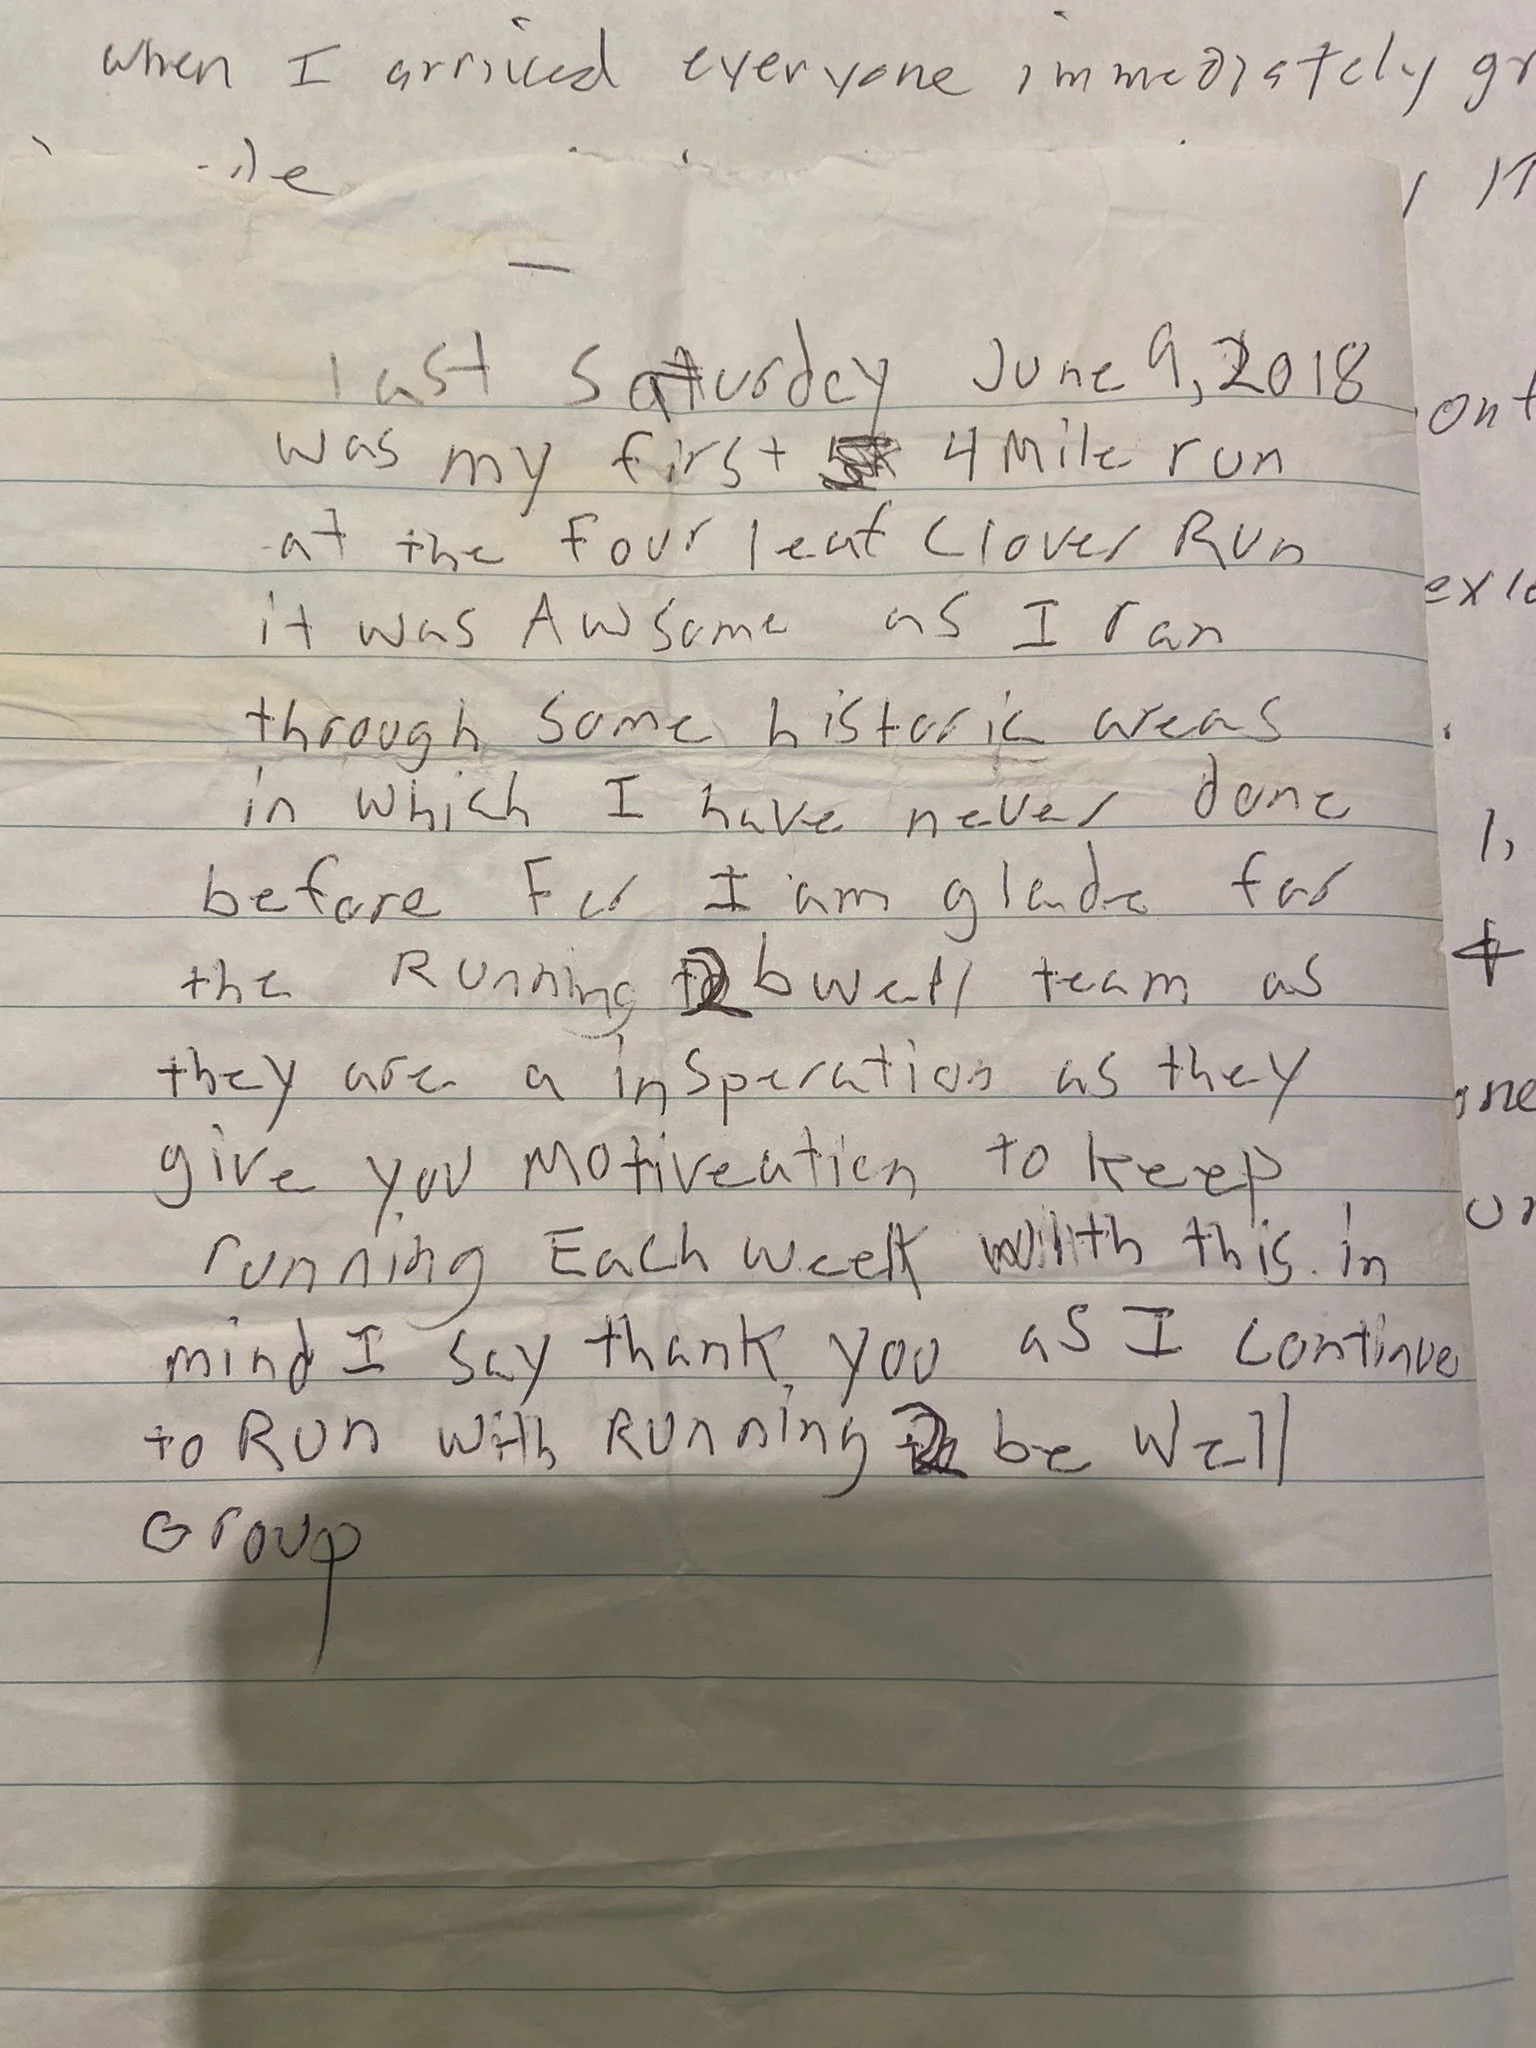 when I arrived everyone immediately gr
last Saturday June 9, 2018
ont
was my first 4 Mile run
at the Four leaf Clover Run
it was Awsome as I ran
through some historic areas
in which I have never done
before For I am glade for
the Running 2 bwell team as
they are a insperation as they
give you Motiveation to keep
running Each week with this in
mind I say thank you as I continue
to Run with Running 2 be Well
Group